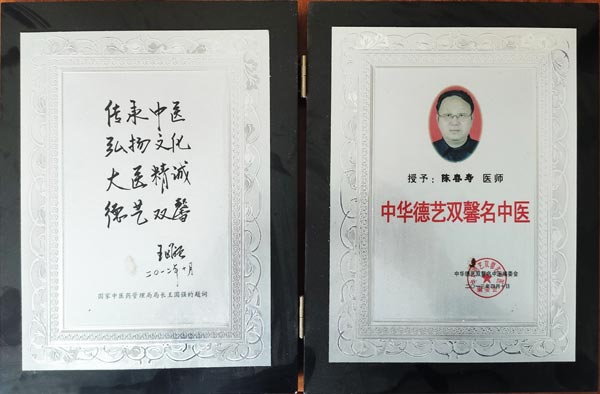 传承中医
弘扬文化
大医精诚
德艺双馨
王国强
二〇一二年十月
国家中医药管理局局长王国强的题词
授予：陈春寿 医师
中华德艺双馨名中医
中华德艺双馨名中医编委会